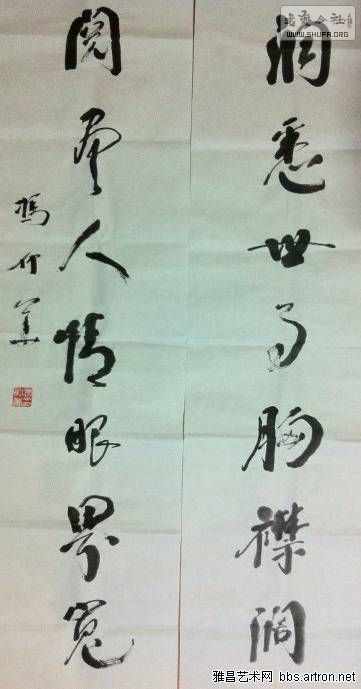 洞悉世事胸襟闊
閱盡人情眼界寬
馮
書法公社
WWW.SHUFA.ORG
雅昌艺术网 bbs.artron.net